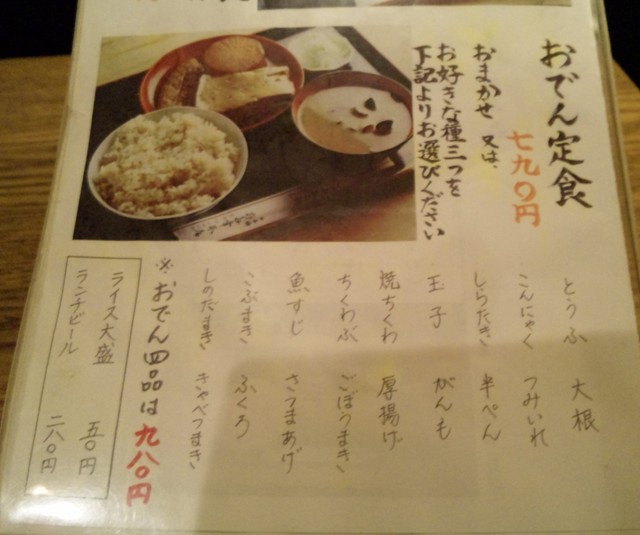 おでん定食
七九〇円
おまかせ 又は、
お好きな種三つを
下記よりお選びください
とうふ 大根
こんにゃく つみいれ
しらたき 半ぺん
玉子 がんも
焼ちくわ 厚揚げ
ちくわぶ ごぼうまき
魚すじ さつまあげ
こぶまき ふくろ
しのだまき きゃべつまき
※おでん四品は九八〇円
ライス大盛 五〇円
ランチビール 二八〇円